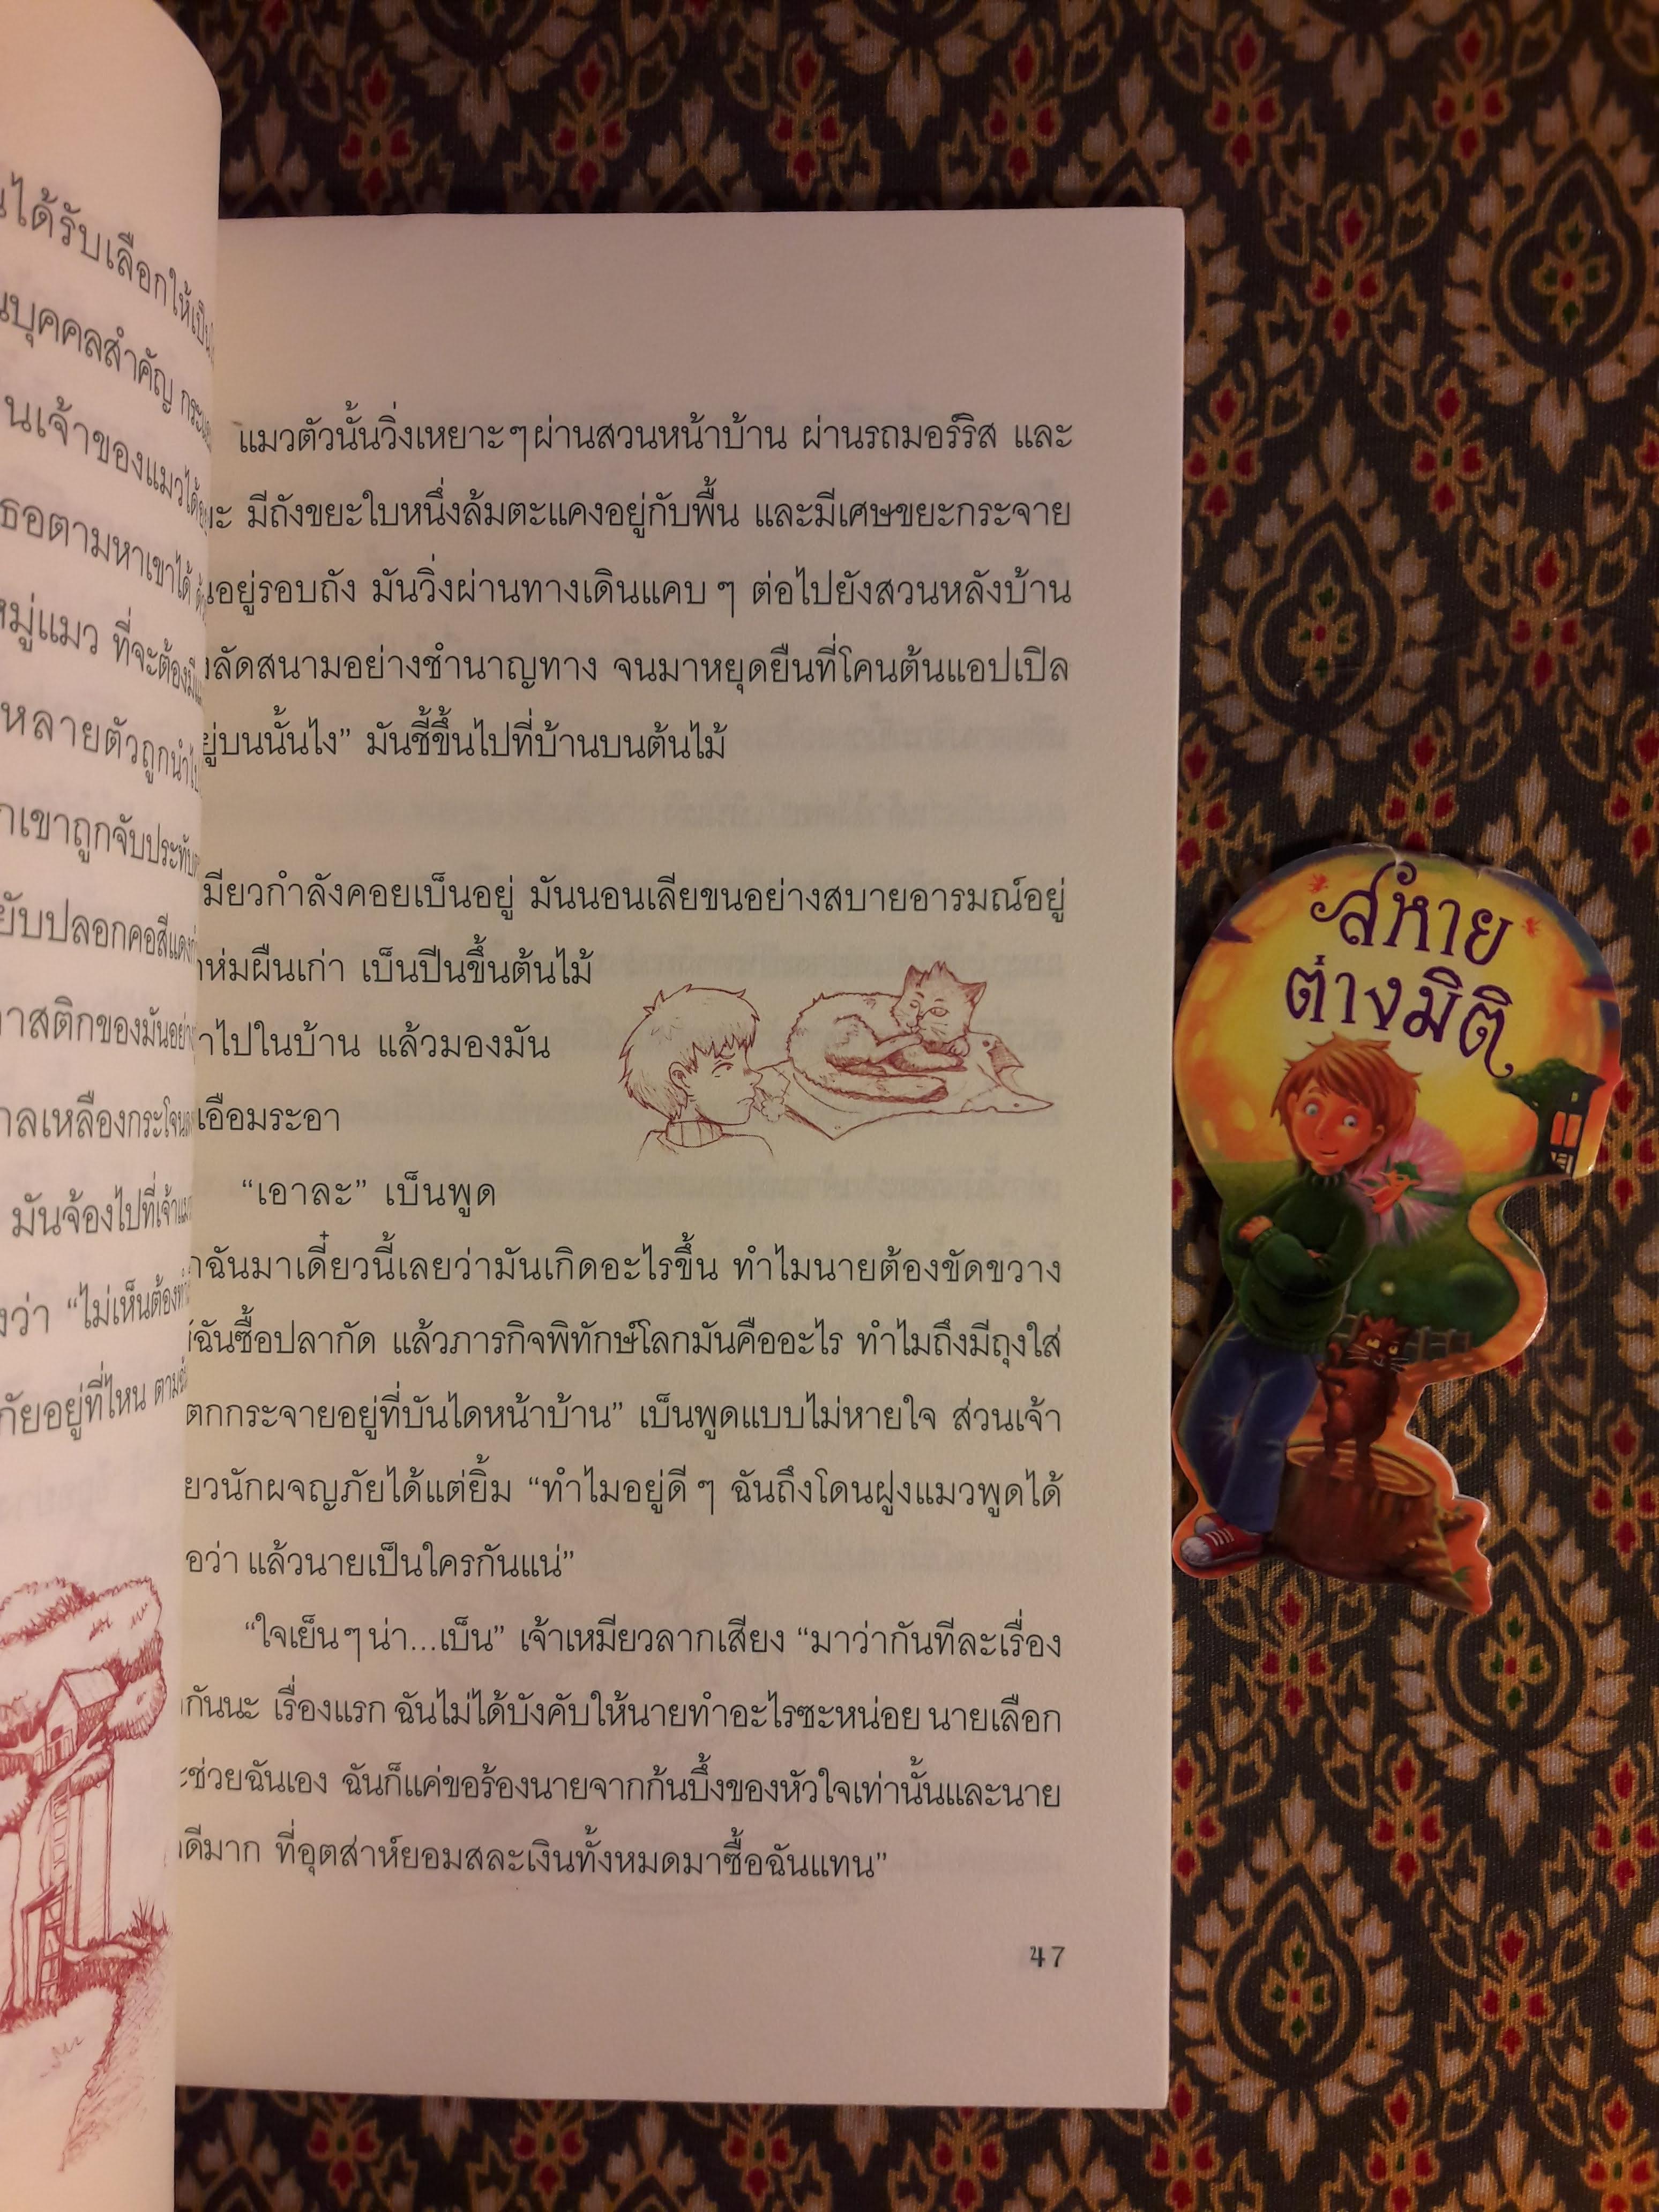 ได้รับเลือกให้เป็น
บุคคลสำคัญ
นเจ้าของแมวได้
ธอตามหาเขาได้
หมู่แมว ที่จะต้องมี
หลายตัวถูกนำไป
กเขาถูกจับประทับ
ยับปลอกคอสีแดง
าสติกของมันอย่าง
าลเหลืองกระโจน
มันจ้องไปที่เจ้าแมว
งว่า “ไม่เห็นต้อง
ภัยอยู่ที่ไหน ตาม
แมวตัวนั้นวิ่งเหยาะๆ ผ่านสวนหน้าบ้าน ผ่านรถมอร์ริส และ
ยะ มีถังขยะใบหนึ่งล้มตะแคงอยู่กับพื้น และมีเศษขยะกระจาย
นอยู่รอบถัง มันวิ่งผ่านทางเดินแคบๆ ต่อไปยังสวนหลังบ้าน
ลัดสนามอย่างชำนาญทาง จนมาหยุดยืนที่โคนต้นแอปเปิล
ยู่บนนั้นไง” มันชี้ขึ้นไปที่บ้านบนต้นไม้
มียวกำลังคอยเบ็นอยู่ มันนอนเลียขนอย่างสบายอารมณ์อยู่
าห่มผืนเก่า เบ็นปีนขึ้นต้นไม้
าไปในบ้าน แล้วมองมัน
เอือมระอา
“เอาละ” เบ็นพูด
กฉันมาเดี๋ยวนี้เลยว่ามันเกิดอะไรขึ้น ทำไมนายต้องขัดขวาง
ห้ฉันซื้อปลากัด แล้วภารกิจพิทักษ์โลกมันคืออะไร ทำไมถึงมีถุงใส่
ตกกระจายอยู่ที่บันไดหน้าบ้าน” เบ็นพูดแบบไม่หายใจ ส่วนเจ้า
ยวนักผจญภัยได้แต่ยิ้ม “ทำไมอยู่ดีๆ ฉันถึงโดนฝูงแมวพูดได้
อว่า แล้วนายเป็นใครกันแน่”
“ใจเย็นๆ น่า...เบ็น” เจ้าเหมียวลากเสียง “มาว่ากันทีละเรื่อง
กันนะ เรื่องแรก ฉันไม่ได้บังคับให้นายทำอะไรซะหน่อย นายเลือก
ะช่วยฉันเอง ฉันก็แค่ขอร้องนายจากก้นบึ้งของหัวใจเท่านั้นและนาย
ดีมาก ที่อุตส่าห์ยอมสละเงินทั้งหมดมาซื้อฉันแทน”
47
สหาย
ต่างมิติ